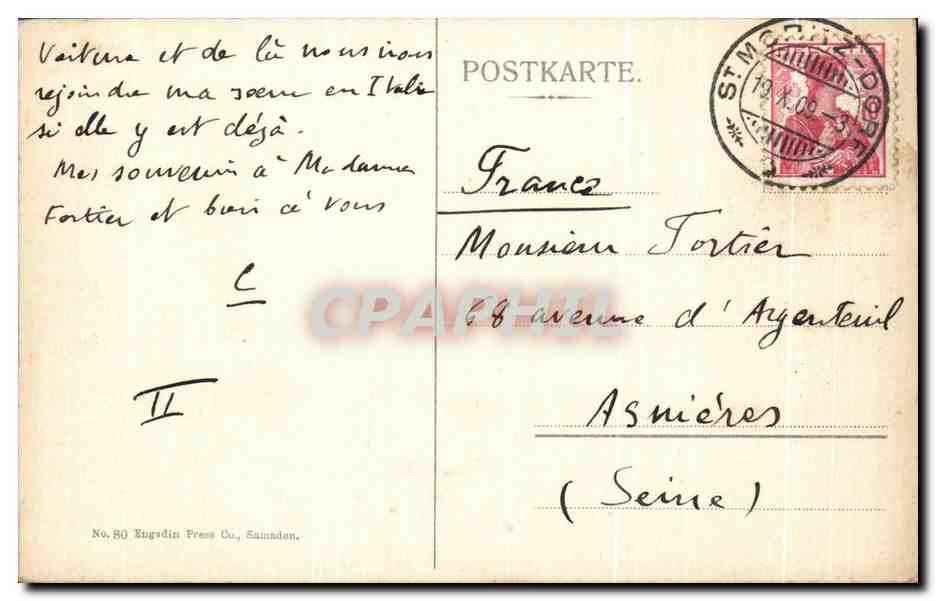 Voiture et de là nous irons
rejoindre ma sœur en Italie
si elle y est déjà.
Mes souvenirs à Madame
Fortier et bien à vous
C
II
No. 80 Engadin Press Co., Samaden.
POSTKARTE.
ST. MORITZ-DORF
19.X.09.-3
France
Monsieur Fortier
68 avenue d'Argenteuil
Asnières
(Seine)
CPAPHIL